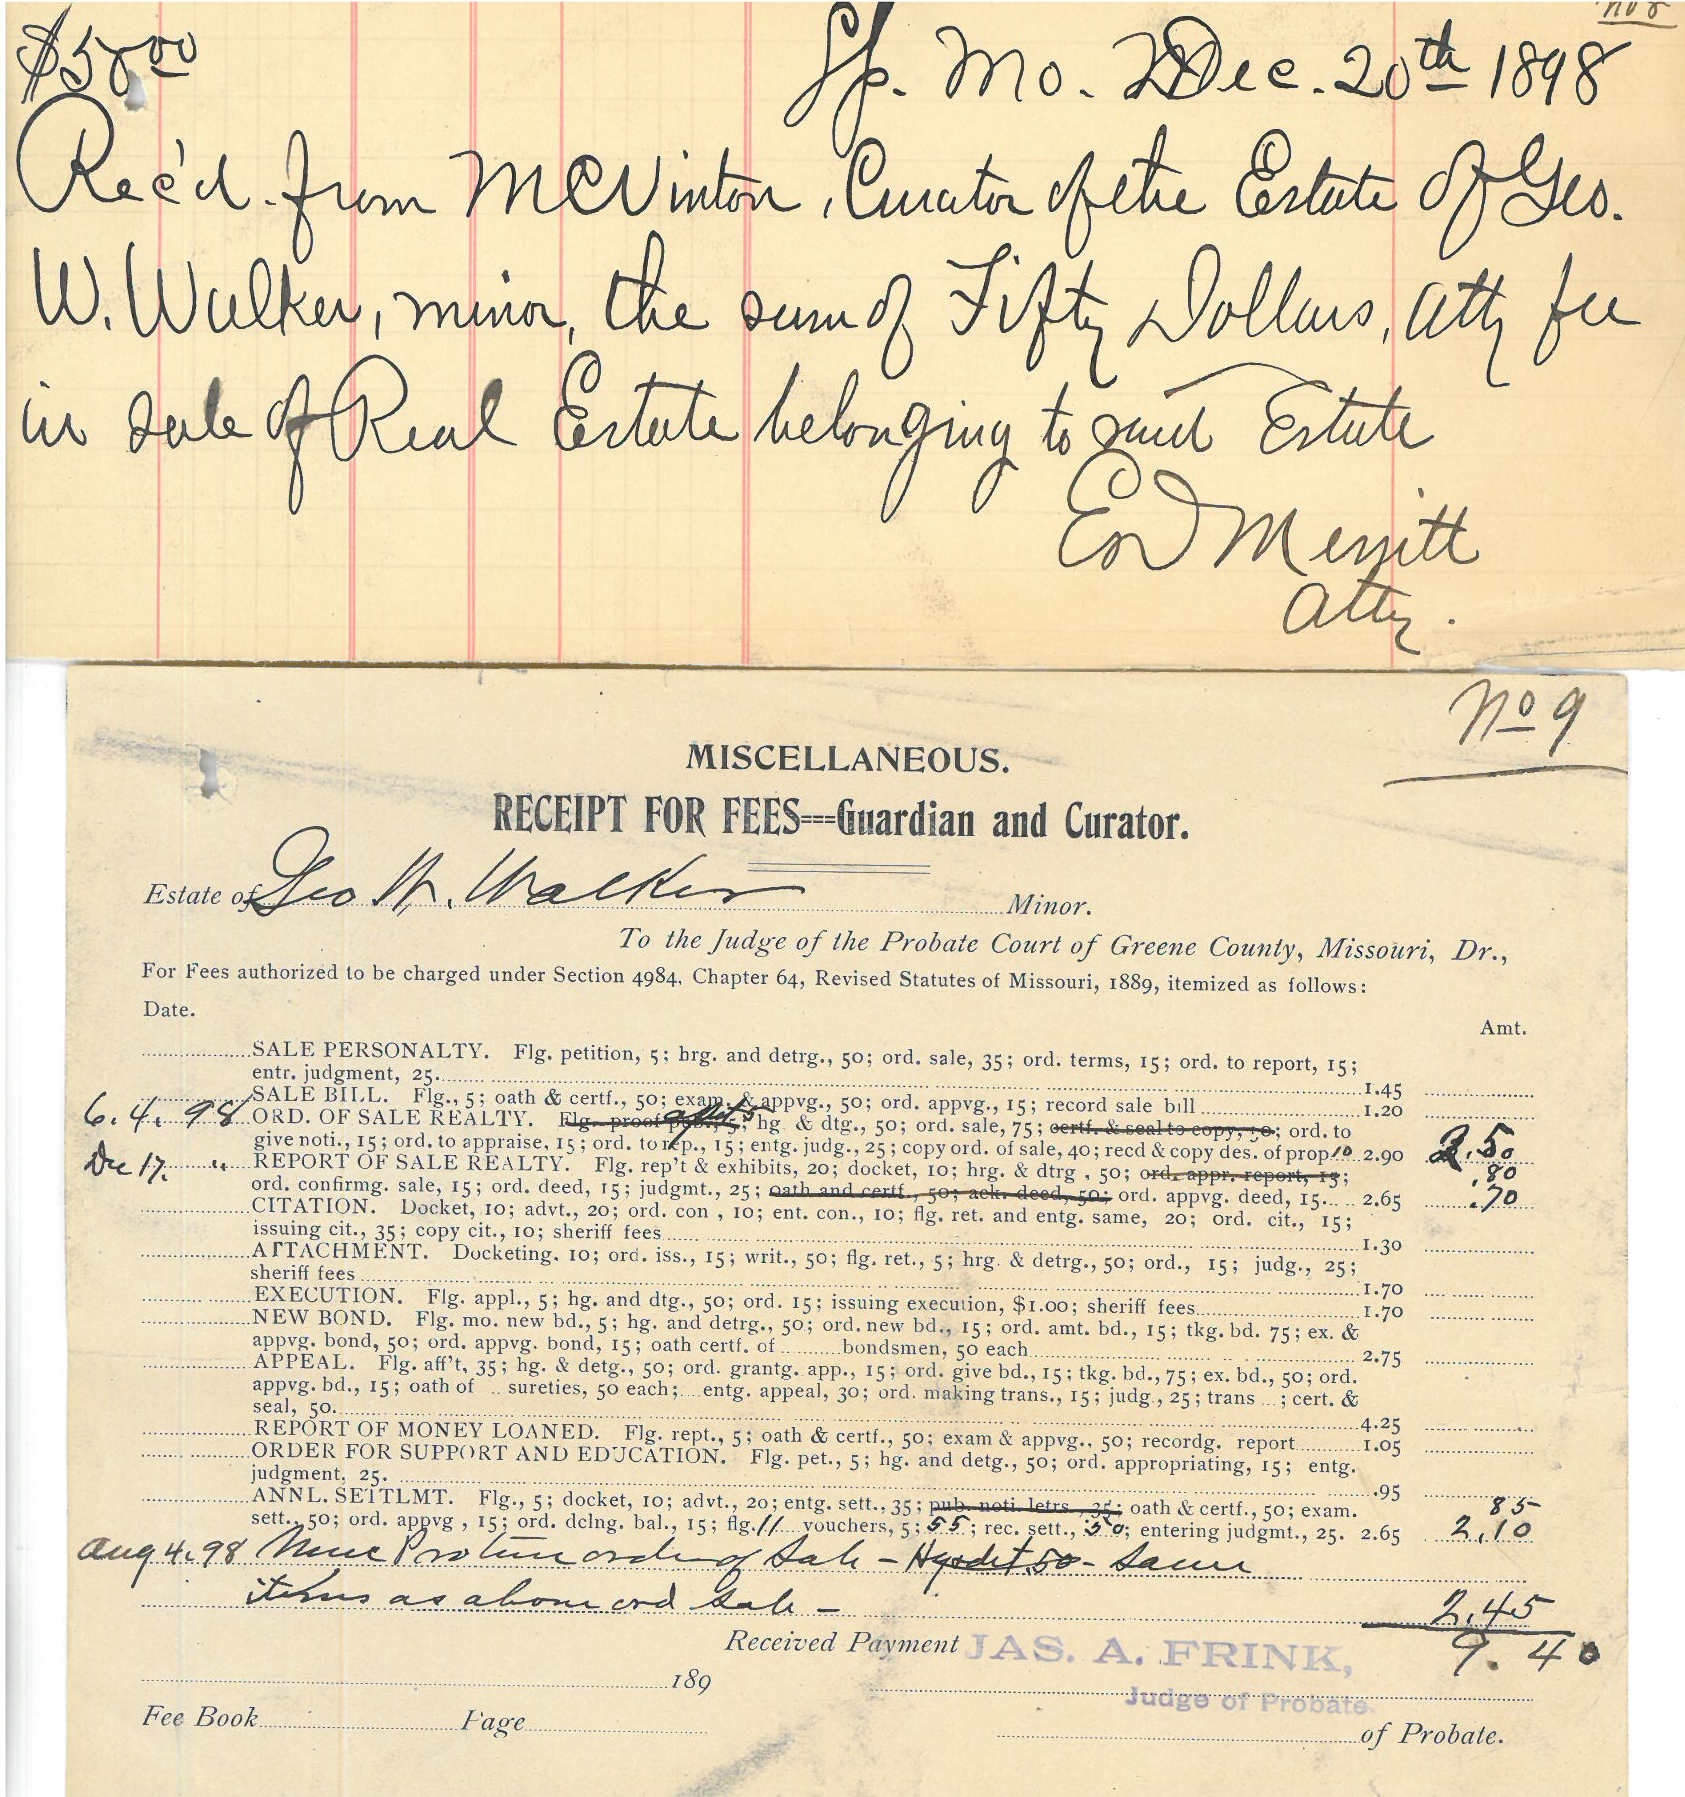 No 8
$50.00 Sp. Mo. Dec. 20th 1898
Rec'd. from M C Vinton, Curator of the Estate of Geo.
W. Walker, minor, the sum of Fifty Dollars, atty fee
in sale of Real Estate belonging to said Estate
Ed Merritt
Atty.
No 9
MISCELLANEOUS.
RECEIPT FOR FEES===Guardian and Curator.
Estate of Geo W. Walker Minor.
To the Judge of the Probate Court of Greene County, Missouri, Dr.,
For Fees authorized to be charged under Section 4984, Chapter 64, Revised Statutes of Missouri, 1889, itemized as follows:
Date.
Amt.
SALE PERSONALTY. Flg. petition, 5; hrg. and detrg., 50; ord. sale, 35; ord. terms, 15; ord. to report, 15;
entr. judgment, 25. 1.45
SALE BILL. Flg., 5; oath & certf., 50; exam. & appvg., 50; ord. appvg., 15; record sale bill 1.20
6.4.98 ORD. OF SALE REALTY. Flg. proof pub., 5; hg. & dtg., 50; ord. sale, 75; certf. & seal to copy, 50; ord. to
give noti., 15; ord. to appraise, 15; ord. to rep., 15; entg. judg., 25; copy ord. of sale, 40; recd & copy des. of prop 10 2.90 2.50
Dec 17. " REPORT OF SALE REALTY. Flg. rep't & exhibits, 20; docket, 10; hrg. & dtrg, 50; ord. appr. report, 15; .80
ord. confirmg. sale, 15; ord. deed, 15; judgmt., 25; oath and certf., 50; ack. deed, 50; ord. appvg. deed, 15. 2.65 .70
CITATION. Docket, 10; advt., 20; ord. con, 10; ent. con., 10; flg. ret. and entg. same, 20; ord. cit., 15;
issuing cit., 35; copy cit., 10; sheriff fees 1.30
ATTACHMENT. Docketing. 10; ord. iss., 15; writ., 50; flg. ret., 5; hrg. & detrg., 50; ord., 15; judg., 25;
sheriff fees 1.70
EXECUTION. Flg. appl., 5; hg. and dtg., 50; ord. 15; issuing execution, $1.00; sheriff fees 1.70
NEW BOND. Flg. mo. new bd., 5; hg. and detrg., 50; ord. new bd., 15; ord. amt. bd., 15; tkg. bd. 75; ex. &
appvg. bond, 50; ord. appvg. bond, 15; oath certf. of bondsmen, 50 each 2.75
APPEAL. Flg. aff't, 35; hg. & detg., 50; ord. grantg. app., 15; ord. give bd., 15; tkg. bd., 75; ex. bd., 50; ord.
appvg. bd., 15; oath of sureties, 50 each; entg. appeal, 30; ord. making trans., 15; judg., 25; trans ; cert. &
seal, 50. 4.25
REPORT OF MONEY LOANED. Flg. rept., 5; oath & certf., 50; exam & appvg., 50; recordg. report 1.05
ORDER FOR SUPPORT AND EDUCATION. Flg. pet., 5; hg. and detg., 50; ord. appropriating, 15; entg.
judgment, 25. .95
ANNL. SETTLMT. Flg., 5; docket, 10; advt., 20; entg. sett., 35; pub. noti. letrs., 35; oath & certf., 50; exam. 85
sett., 50; ord. appvg, 15; ord. dclng. bal., 15; flg. 11 vouchers, 5; 55; rec. sett., 50; entering judgmt., 25. 2.65 2.10
Aug 4.98 Nunc Pro tunc order of Sale - Hg & det .50 - Same
items as above ord Sale - 2.45
9.40
Received Payment JAS. A. FRINK,
189
Judge of Probate.
Fee Book Page of Probate.